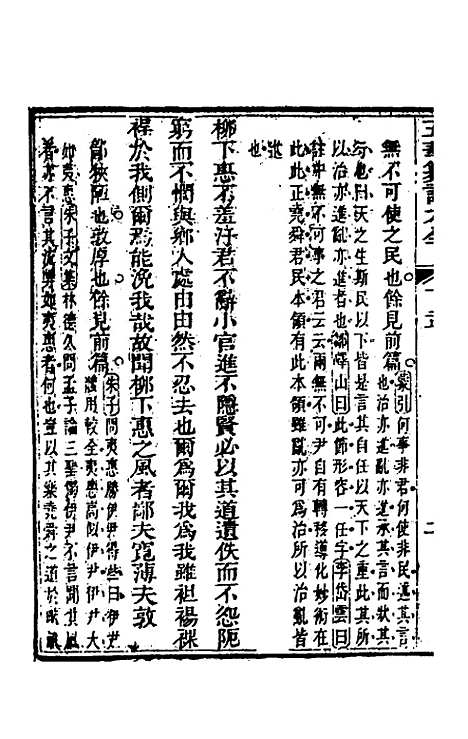 無不可使之民也餘見前篇蒙引何事非君何使非民道其言
也治亦進亂亦進承其言而狀其
行也曰天之生斯民以下皆是言其自任以天下之重此其所
以治亦進亂亦進者也鄒嶧山曰此節形容一任字李岱雲曰
註無不可事之君云云兩無不可尹自有轉移導化妙術在
此此正堯舜君民本領有此本領雖亂亦可為治所以治亂皆
進
也
柳下惠不羞汙君不辭小官進不隱賢必以其道遺佚而不怨阨
窮而不憫與鄉人處由由然不忍去也爾為爾我為我雖袒裼裸
裎於我側爾焉能浼我哉故聞柳下惠之風者鄙夫寬薄夫敦
鄙狹陋也敦厚也餘見前篇朱子問夷惠勝伊尹得些曰伊尹
體用較全夷惠高似伊尹伊尹大
如夷惠朱子文集林德久問孟子論三聖獨伊尹不言聞其風
者亦不言其流弊如夷惠者何也豈以其樂堯舜之道於畎畝